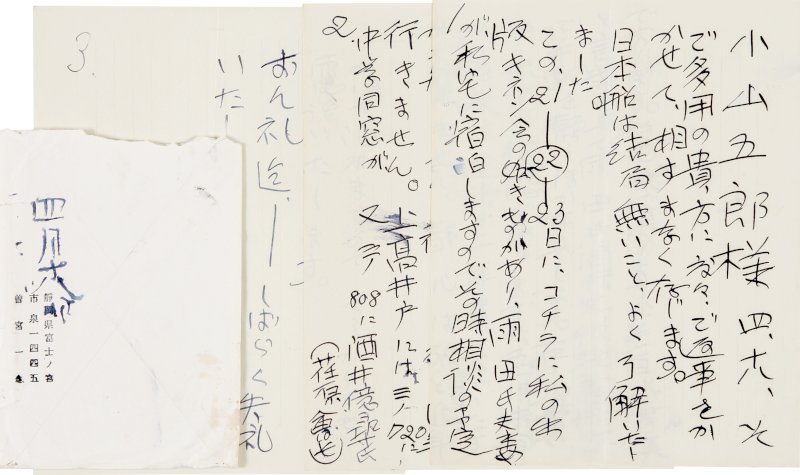 小山五郎様 四、九、
ご多用の貴方に度々ご返事をか
かせて、相すまなく存じます。
日本船は結局無いこと、よく了解いたし
ました
この、21—22—23日に、コチラに私の出
版キネン会の
があり、雨田氏夫妻
が私宅に宿泊しますので、その時相談の予定
行きません。上高井戸には三ノ720に
中学同窓が 又 808に酒井億尋氏
(荏原
2
おん礼迄、— しばらく失礼
いたし
3.
四月九日
静岡県富士ノ宮
市泉一四四五
曽宮一念